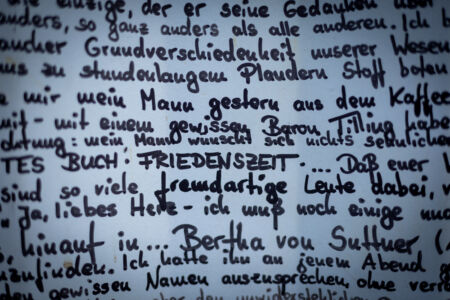 einzige, der er seine Gedanken über
anders, so ganz anders als alle anderen. Ich
mancher Grundverschiedenheit unserer Wesen
uns zu stundenlangem Plaudern Stoff boten
mir mein Mann gestern aus dem Kaffee
mit - mit einem gewissen Baron Tilling habe
chtung: mein Mann wünscht sich nichts sehnlicher
TES BUCH: FRIEDENSZEIT. ... Daß euer
sind so viele fremdartige Leute dabei,
Ja, liebes Herz - ich muß noch einige
hinauf in ... Bertha von Suttner (
nzufinden. Ich hatte ihn an jenem Abend
den gewissen Namen auszusprechen, ohne